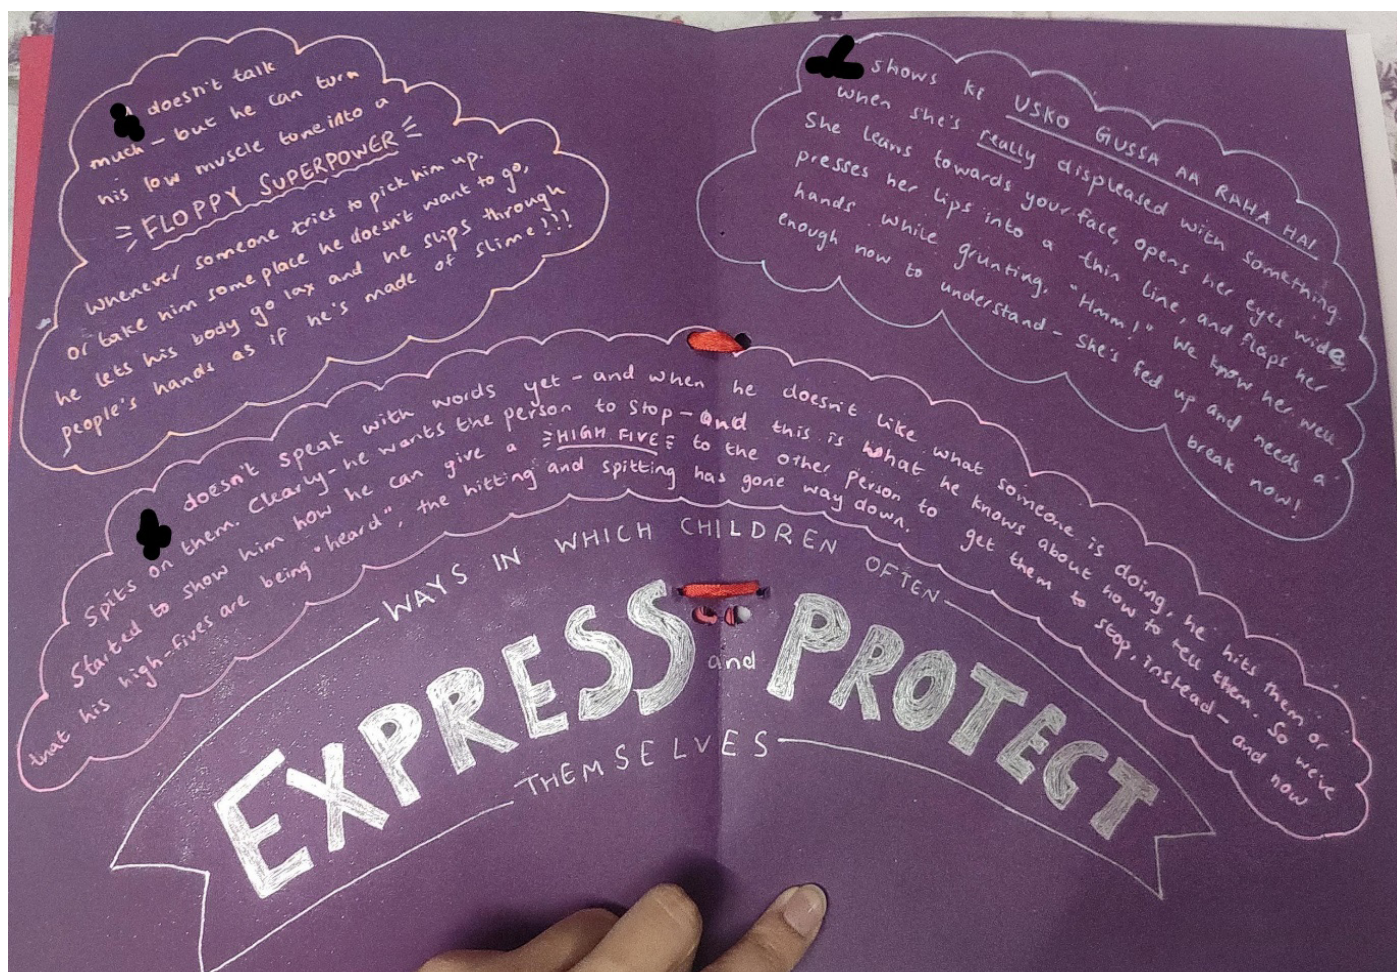 doesn't talk
much - but he can turn
his low muscle tone into a
FLOPPY SUPERPOWER
Whenever someone tries to pick him up.
or take him some place he doesn't want to go,
he lets his body go lax and he slips through
people's hands as if he's made of slime!!!
shows ke USKO GUSSA AA RAHA HAI
when she's really displeased with something.
She leans towards your face, opens her eyes wide,
presses her lips into a thin line, and flaps her
hands while grunting, "Hmm!" We know her well
enough now to understand - she's fed up and needs a
break now!
doesn't speak with words yet - and when he doesn't like what someone is doing, he hits them or
Spits on them. Clearly - he wants the person to stop - and this is what he knows about how to tell them. So we've
Started to show him how he can give a HIGH FIVE to the other person to get them to stop, instead - and now
that his high-fives are being "heard", the hitting and spitting has gone way down.
WAYS IN WHICH CHILDREN OFTEN
EXPRESS and PROTECT
THEMSELVES